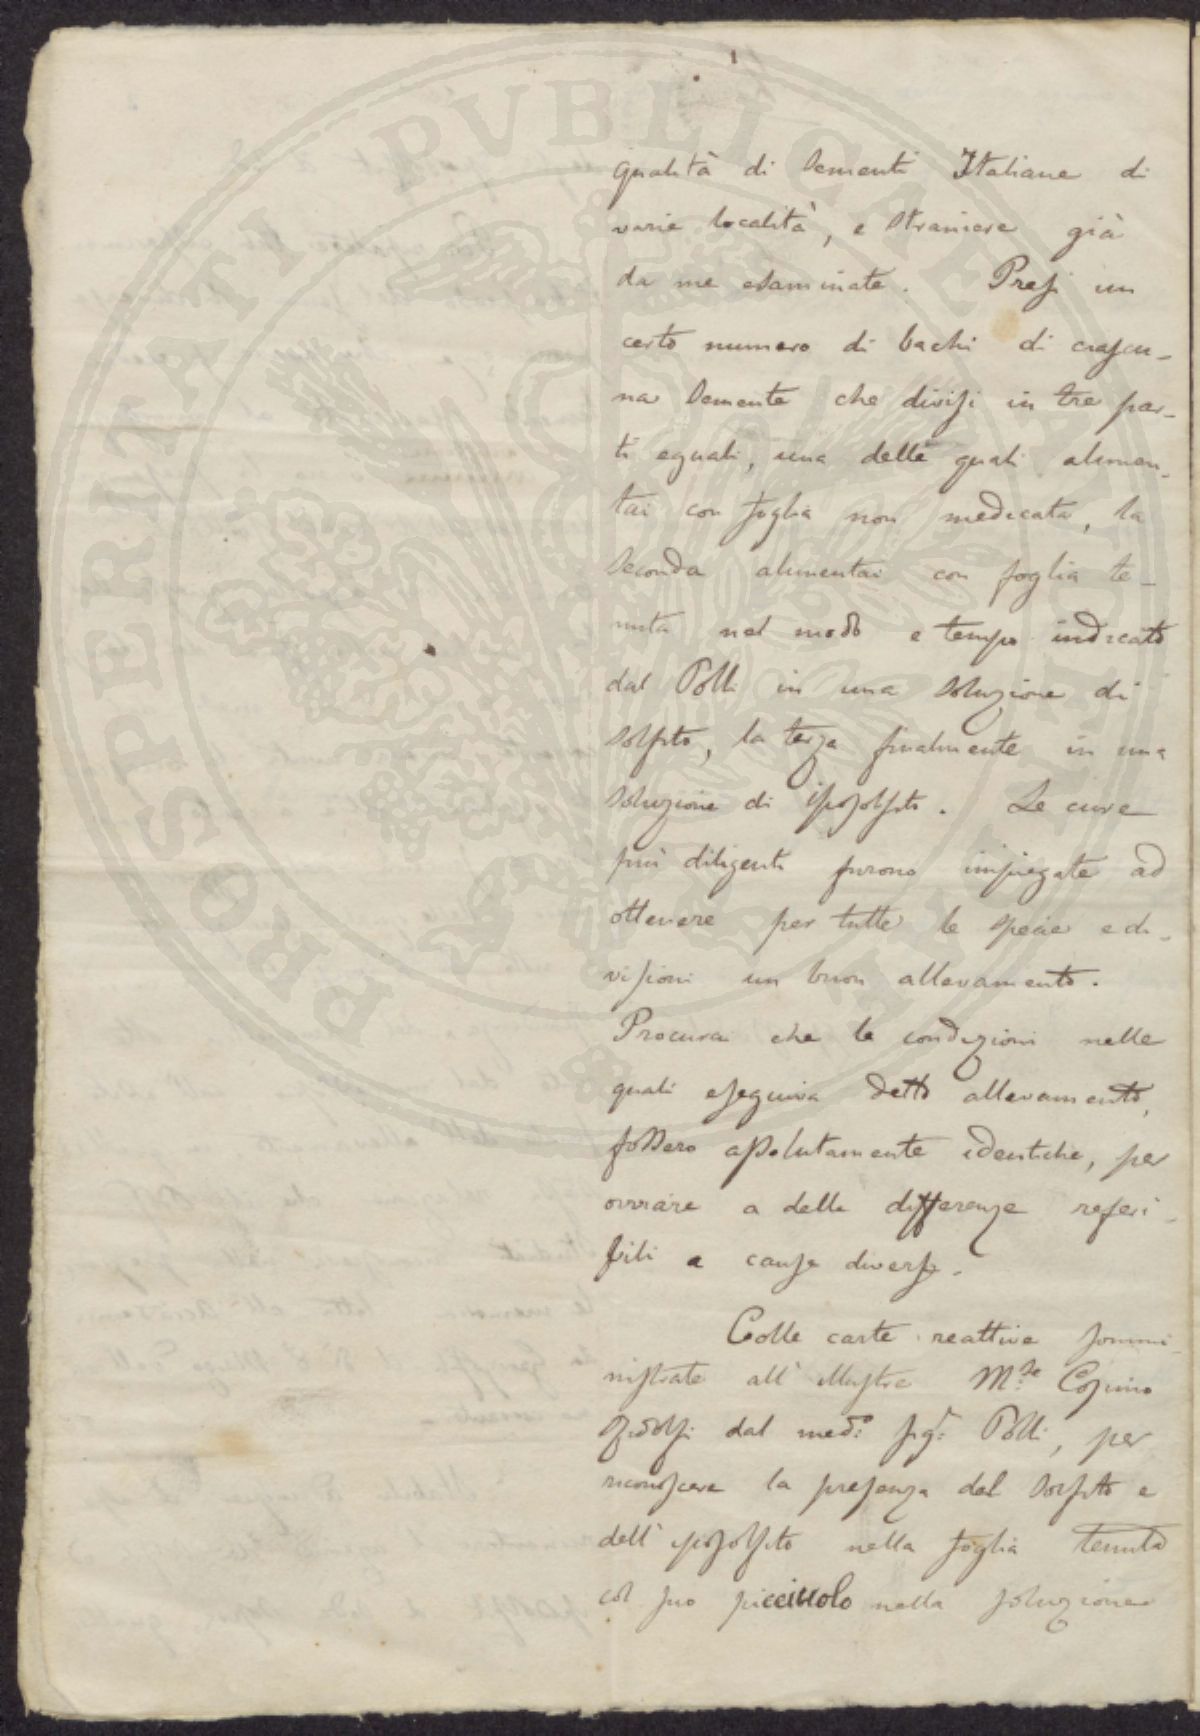 qualità di Sementi Italiane di
varie località, e straniere già
da me esaminate. Presi un
certo numero di bachi di ciascu-
na Semente che divisi in tre par-
ti eguali, una delle quali alimen-
tai con foglia non medicata, la
Seconda alimentai con foglia te-
nuta nel modo e tempo indicato
dal Polli in una Soluzione di
Solfito, la terza finalmente in una
Soluzione di iposolfito. Le cure
più diligenti furono impiegate ad
ottenere per tutte le specie e di-
visioni un buon allevamento.
Procurai che le condizioni nelle
quali eseguiva detto allevamento,
fossero assolutamente identiche, per
ovviare a delle differenze referi-
bili a cause diverse.
Colle carte reattive sommi-
nistrate all' illustre M.se Cosimo
Ridolfi dal med.o sig.r Polli, per
riconoscere la presenza del Solfito e
dell' iposolfito nella foglia tenuta
col suo picciuolo nella soluzione
PROSPERITATI PVBLICAE